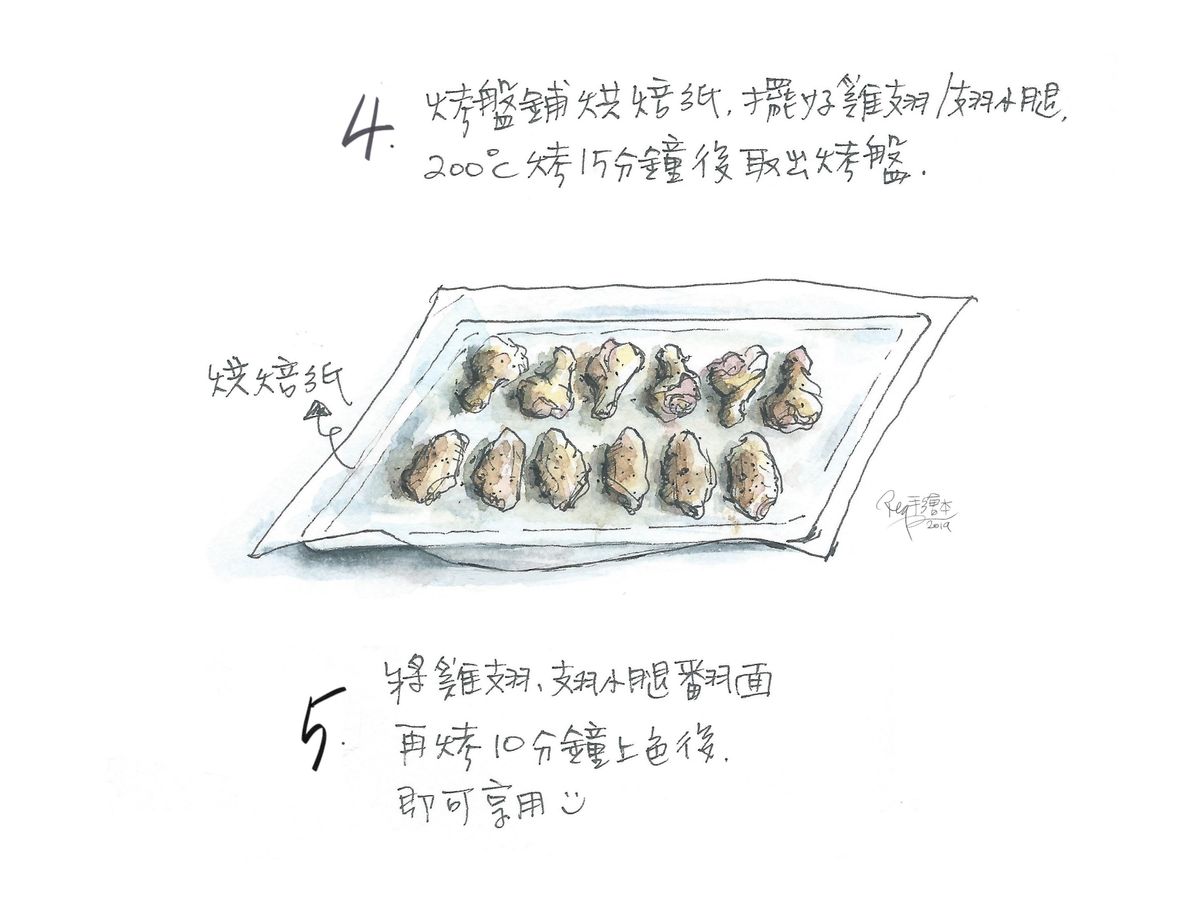 4. 烤盤鋪烘焙紙,擺好雞翅/翅小腿,
200℃烤15分鐘後取出烤盤.
烘焙紙
手繪本
2019
5. 將雞翅、翅小腿翻面
再烤10分鐘上色後.
即可享用